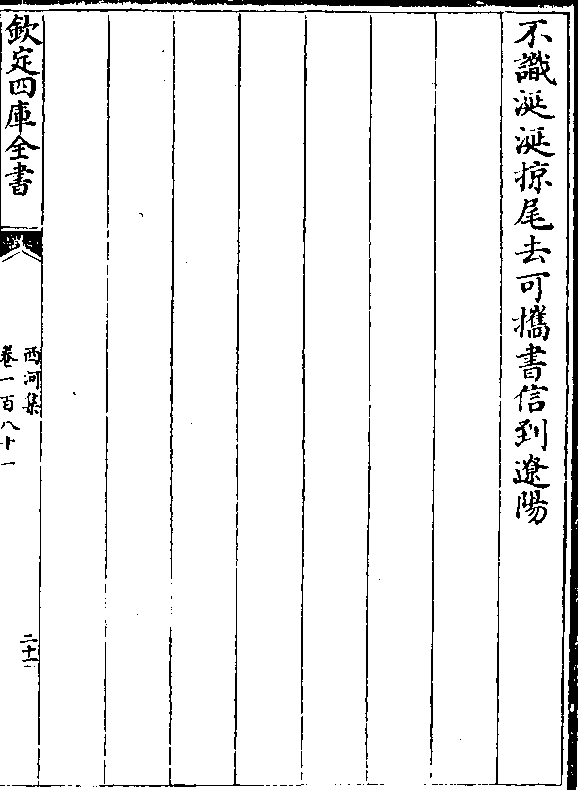 不識涎涎掠尾去可攜書信到遼陽
欽定四庫全書
西河集
卷一百八十一
二十一